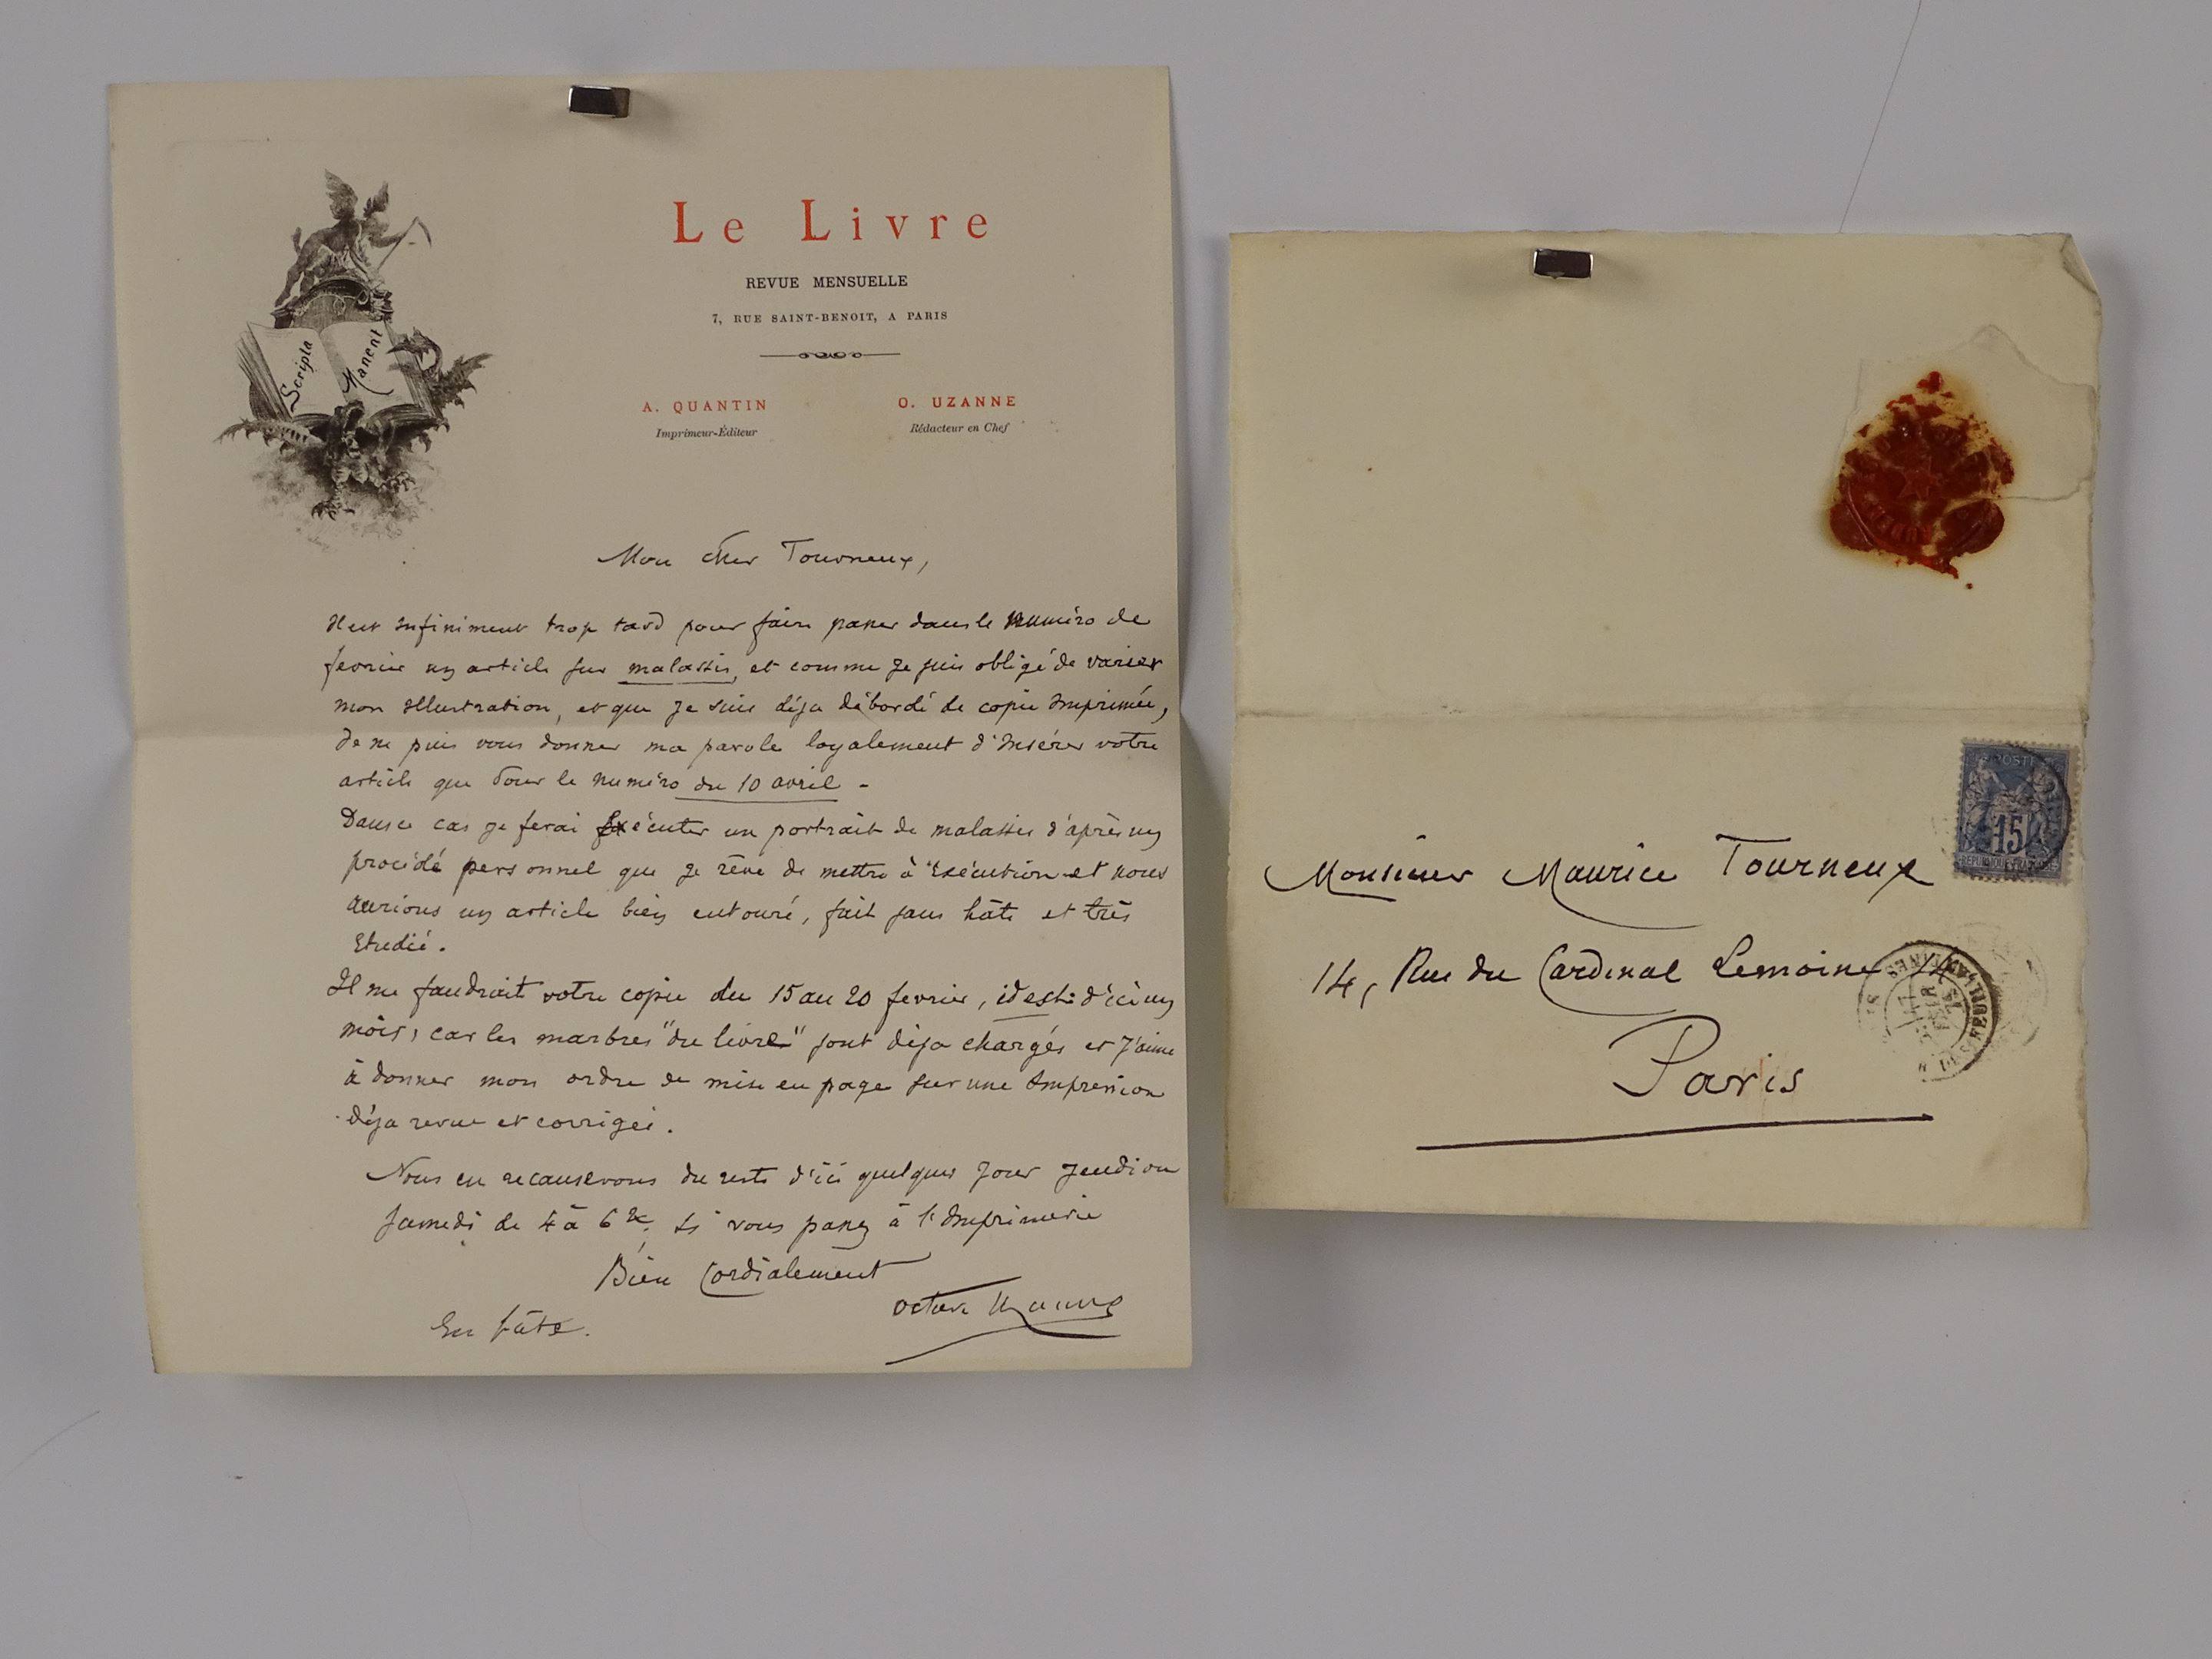 Le Livre
REVUE MENSUELLE
7, RUE SAINT-BENOIT, A PARIS
A. QUANTIN
Imprimeur-Éditeur
O. UZANNE
Rédacteur en Chef
Scripta Manent
Mon cher Tourneux,
Il est infiniment trop tard pour faire passer dans le numéro de
fevrier un article sur malassis, et comme je suis obligé de varier
mon illustration, et que je suis déja débordé de copie imprimée,
Je ne puis vous donner ma parole loyalement d'insérer votre
article que pour le numéro du 10 avril -
Dans ce cas je ferai exécuter un portrait de malassis d'après un
procédé personnel que je rêve de mettre à Exécution et nous
aurions un article bien entouré, fait sans hâte et très
Etudié.
Il me faudrait votre copie du 15 au 20 fevrier, id est: d'ici un
mois, car les marbres "du livre" sont déja chargés et J'aime
à donner mon ordre de mise en page sur une Impression
déja revue et corrigée.
Nous en recauserons du reste d'ici quelques jours Jeudi ou
Samedi de 4 à 6 h. si vous passez à l'Imprimerie
Bien Cordialement
Octave Uzanne
En hâte.
POSTE
15
REPUBLIQUE FRANÇAISE
Monsieur Maurice Tourneux
14, Rue du Cardinal Lemoine 14
Paris